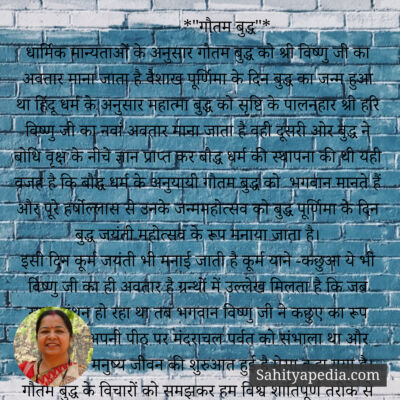 *"गौतम बुद्ध"*
धार्मिक मान्यताओं के अनुसार गौतम बुद्ध को श्री विष्णु जी का
अवतार माना जाता है वैशाख पूर्णिमा के दिन बुद्ध का जन्म हुआ
था हिंदू धर्म के अनुसार महात्मा बुद्ध को सृष्टि के पालनहार श्री हरि
विष्णु जी का नवां अवतार माना जाता है वही दूसरी ओर बुद्ध ने
बोधि वृक्ष के नीचे ज्ञान प्राप्त कर बौद्ध धर्म की स्थापना की थी यही
वजह है कि बौद्ध धर्म के अनुयायी गौतम बुद्ध को भगवान मानते हैं
और पूरे हर्षोल्लास से उनके जन्ममहोत्सव को बुद्ध पूर्णिमा के दिन
बुद्ध जयंती महोत्सव के रूप मनाया जाता है।
इसी दिन कूर्म जयंती भी मनाई जाती है कूर्म याने -कछुआ ये भी
विष्णु जी का ही अवतार है ग्रन्थों में उल्लेख मिलता है कि जब
हो रहा था तब भगवान विष्णु जी ने कछुए का रूप
अपनी पीठ पर मंदराचल पर्वत को संभाला था और
मनुष्य जीवन की शुरुआत
गौतम बुद्ध के विचारों को समझकर हम विश्व शांतिपूर्ण तरीके से
Sahityapedia.com